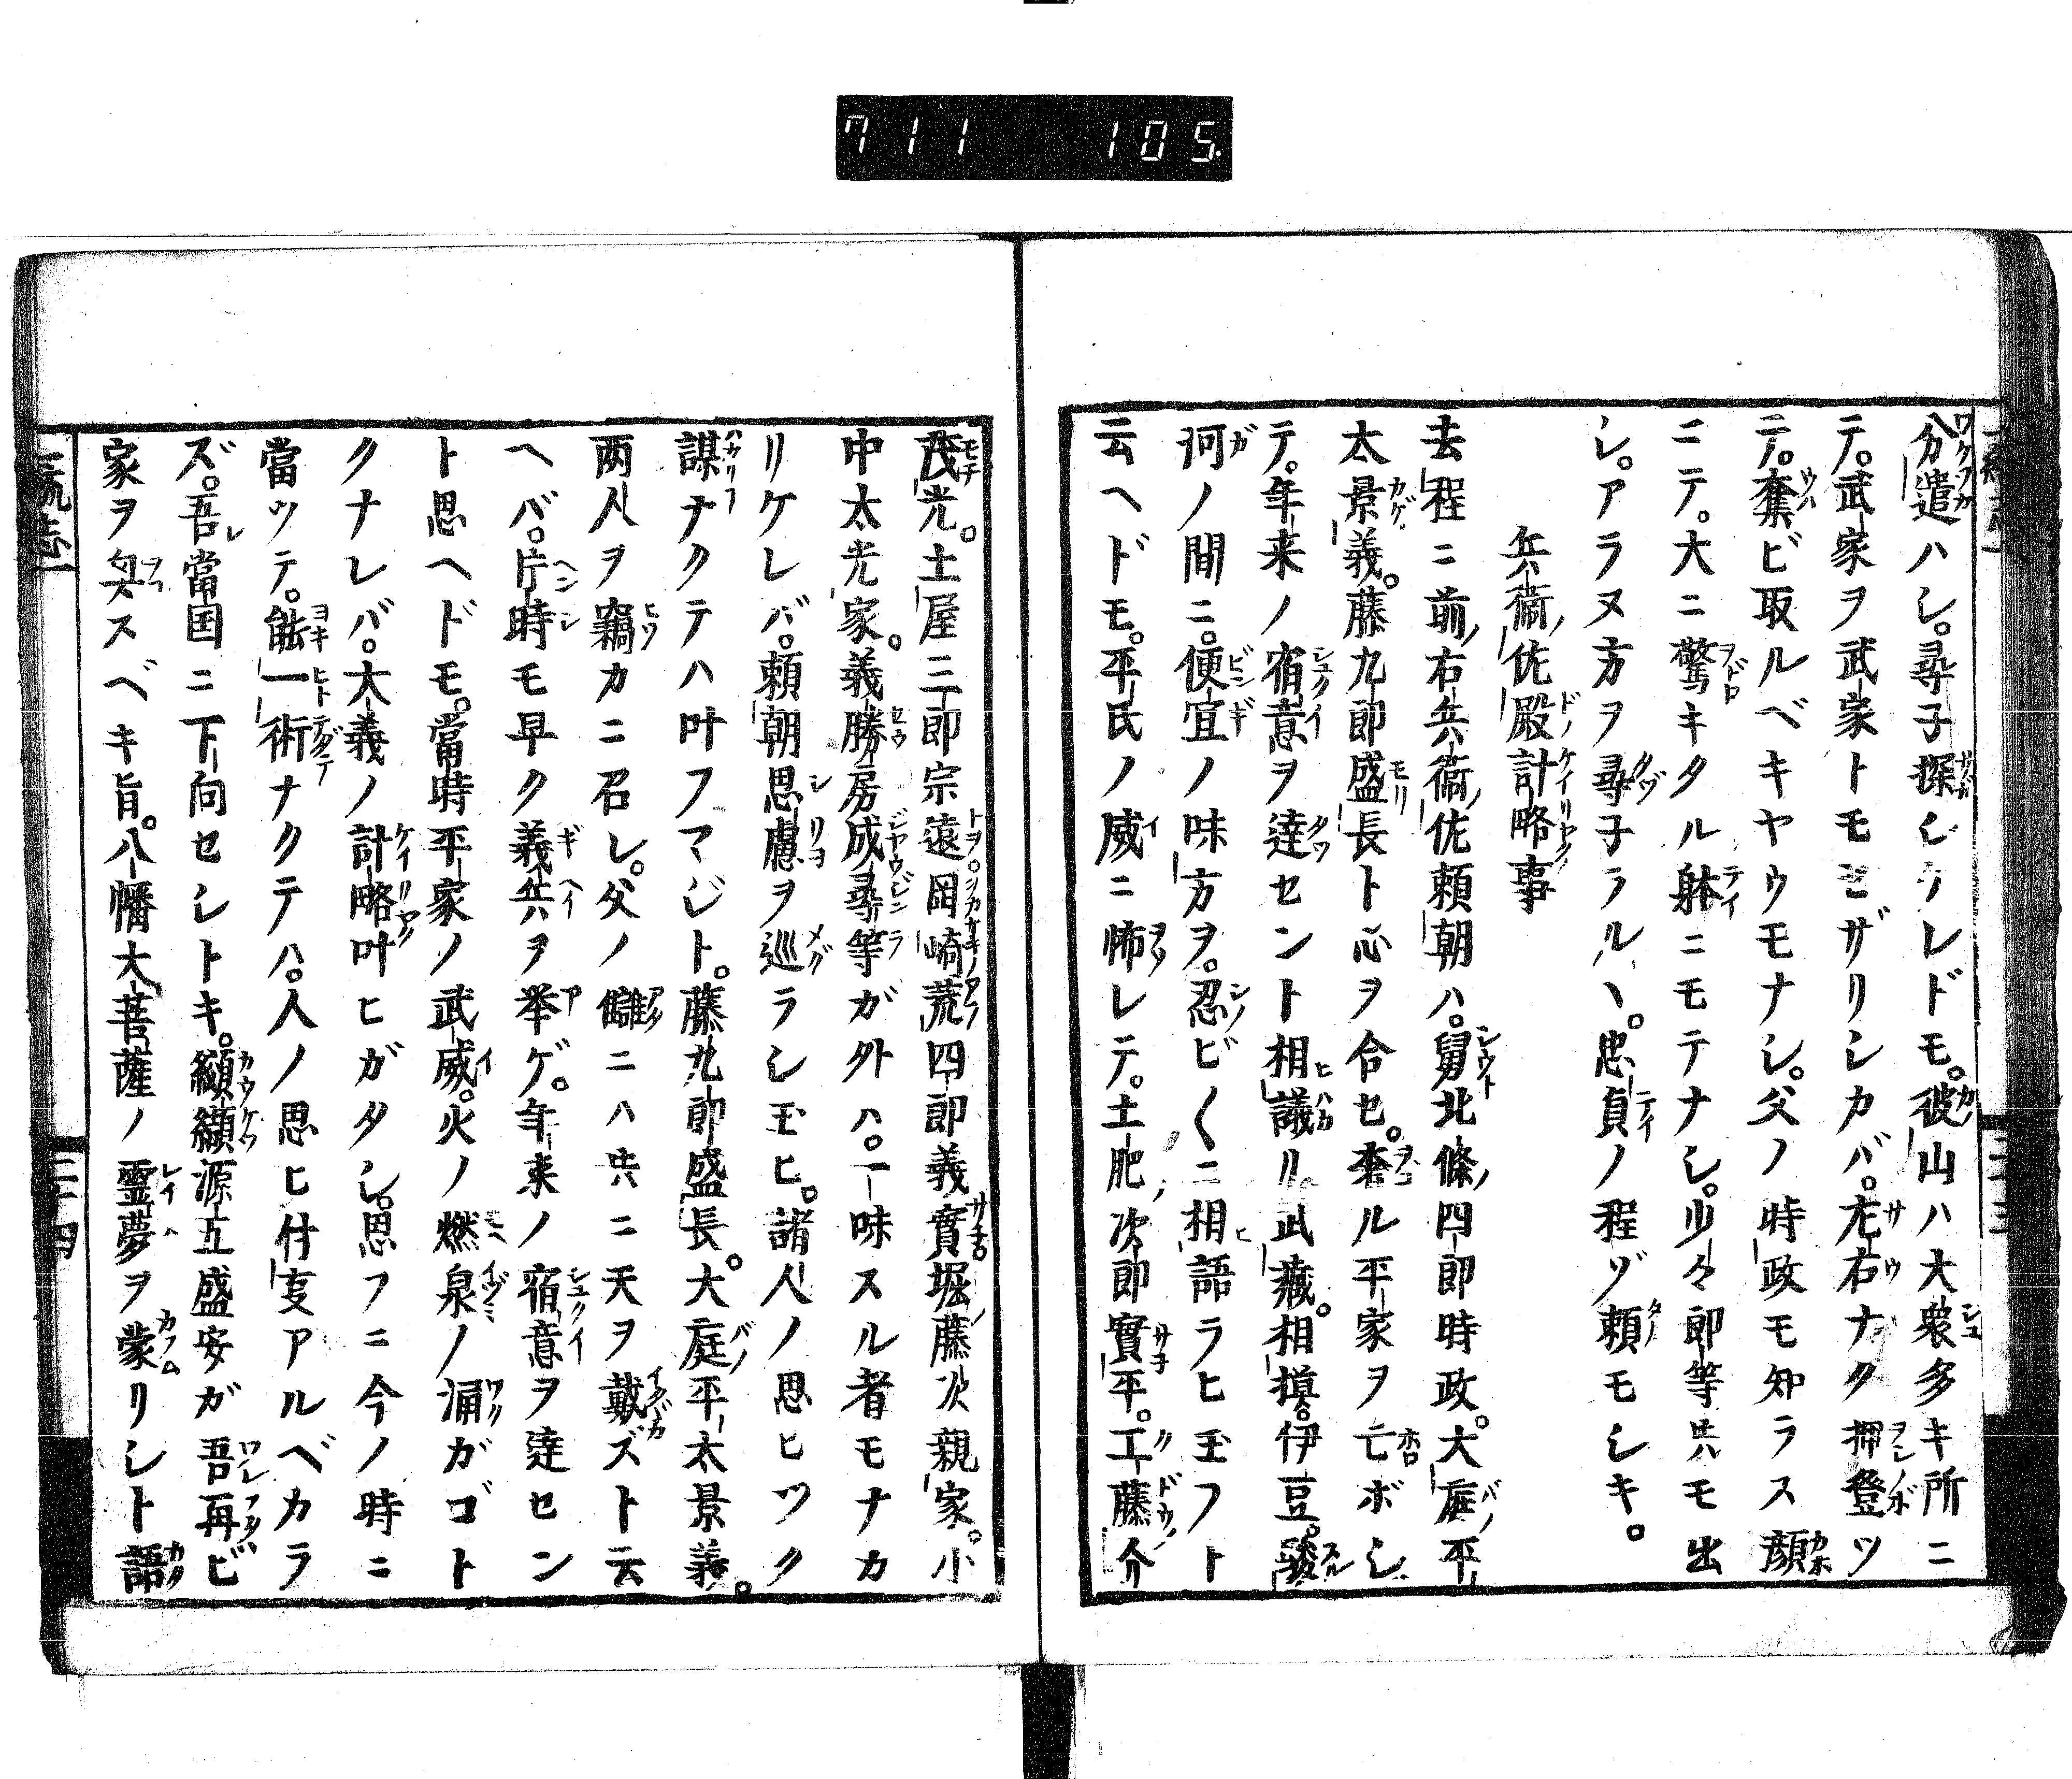 711 105
分遣ハシ。尋子探シケレドモ。彼山ハ大衆多キ所ニ
テ。武家ヲ武家トモセザリシカバ。左右ナク押登ツ
テ。奪ビ取ルベキヤウモナシ。父ノ時政モ知ラス顔
ニテ。大ニ驚キタル躰ニモテナシ。少々郎等共モ出
シ。アラヌ方ヲ尋子ラルヽ。忠貞ノ程ゾ頼モシキ。
兵衞佐殿計略事
去程ニ前右兵衞佐頼朝ハ。舅北條四郎時政。大庭平
太景義。藤九郎盛長ト心ヲ合セ。奢ル平家ヲ亡ボシ
テ。年来ノ宿意ヲ達セント相議リ。武藏。相摸。伊豆。駿
河ノ間ニ。便宜ノ味方ヲ。忍ビ〱ニ相語ラヒ玉フト
云ヘドモ。平氏ノ威ニ怖レテ。土肥次郎實平。工藤介
茂光。土屋三郎宗遠。岡崎荒四郎義實。堀藤次親家。小
中太光家。義勝房成尋等ガ外ハ。一味スル者モナカ
リケレバ。頼朝思慮ヲ巡ラシ玉ヒ。諸人ノ思ヒツク
謀ナクテハ叶フマジト。藤九郎盛長。大庭平太景義。
両人ヲ竊カニ召シ。父ノ讎ニハ共ニ天ヲ戴ズト云
ヘバ。片時モ早ク義兵ヲ挙ゲ。年来ノ宿意ヲ達セン
ト思ヘドモ。當時平家ノ武威。火ノ燃泉ノ涌ガゴト
クナレバ。大義ノ計略叶ヒガタシ。思フニ今ノ時ニ
當ツテ。能一術ナクテハ。人ノ思ヒ付支アルベカラ
ズ。吾當国ニ下向セシトキ。纐纈源五盛安ガ吾再ビ
家ヲ興スベキ旨。八幡大菩薩ノ霊夢ヲ蒙リシト語